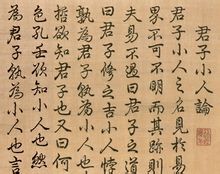 君子小人論
君子小人之名見於易
界不可不明而其跡則
夫易不過曰君子之道
曰君子脩之吉小人悖
孰為君子孰為小人也
哲欲知君子也又曰何
色孔壬欲知小人也然
為君子孰為小人也言